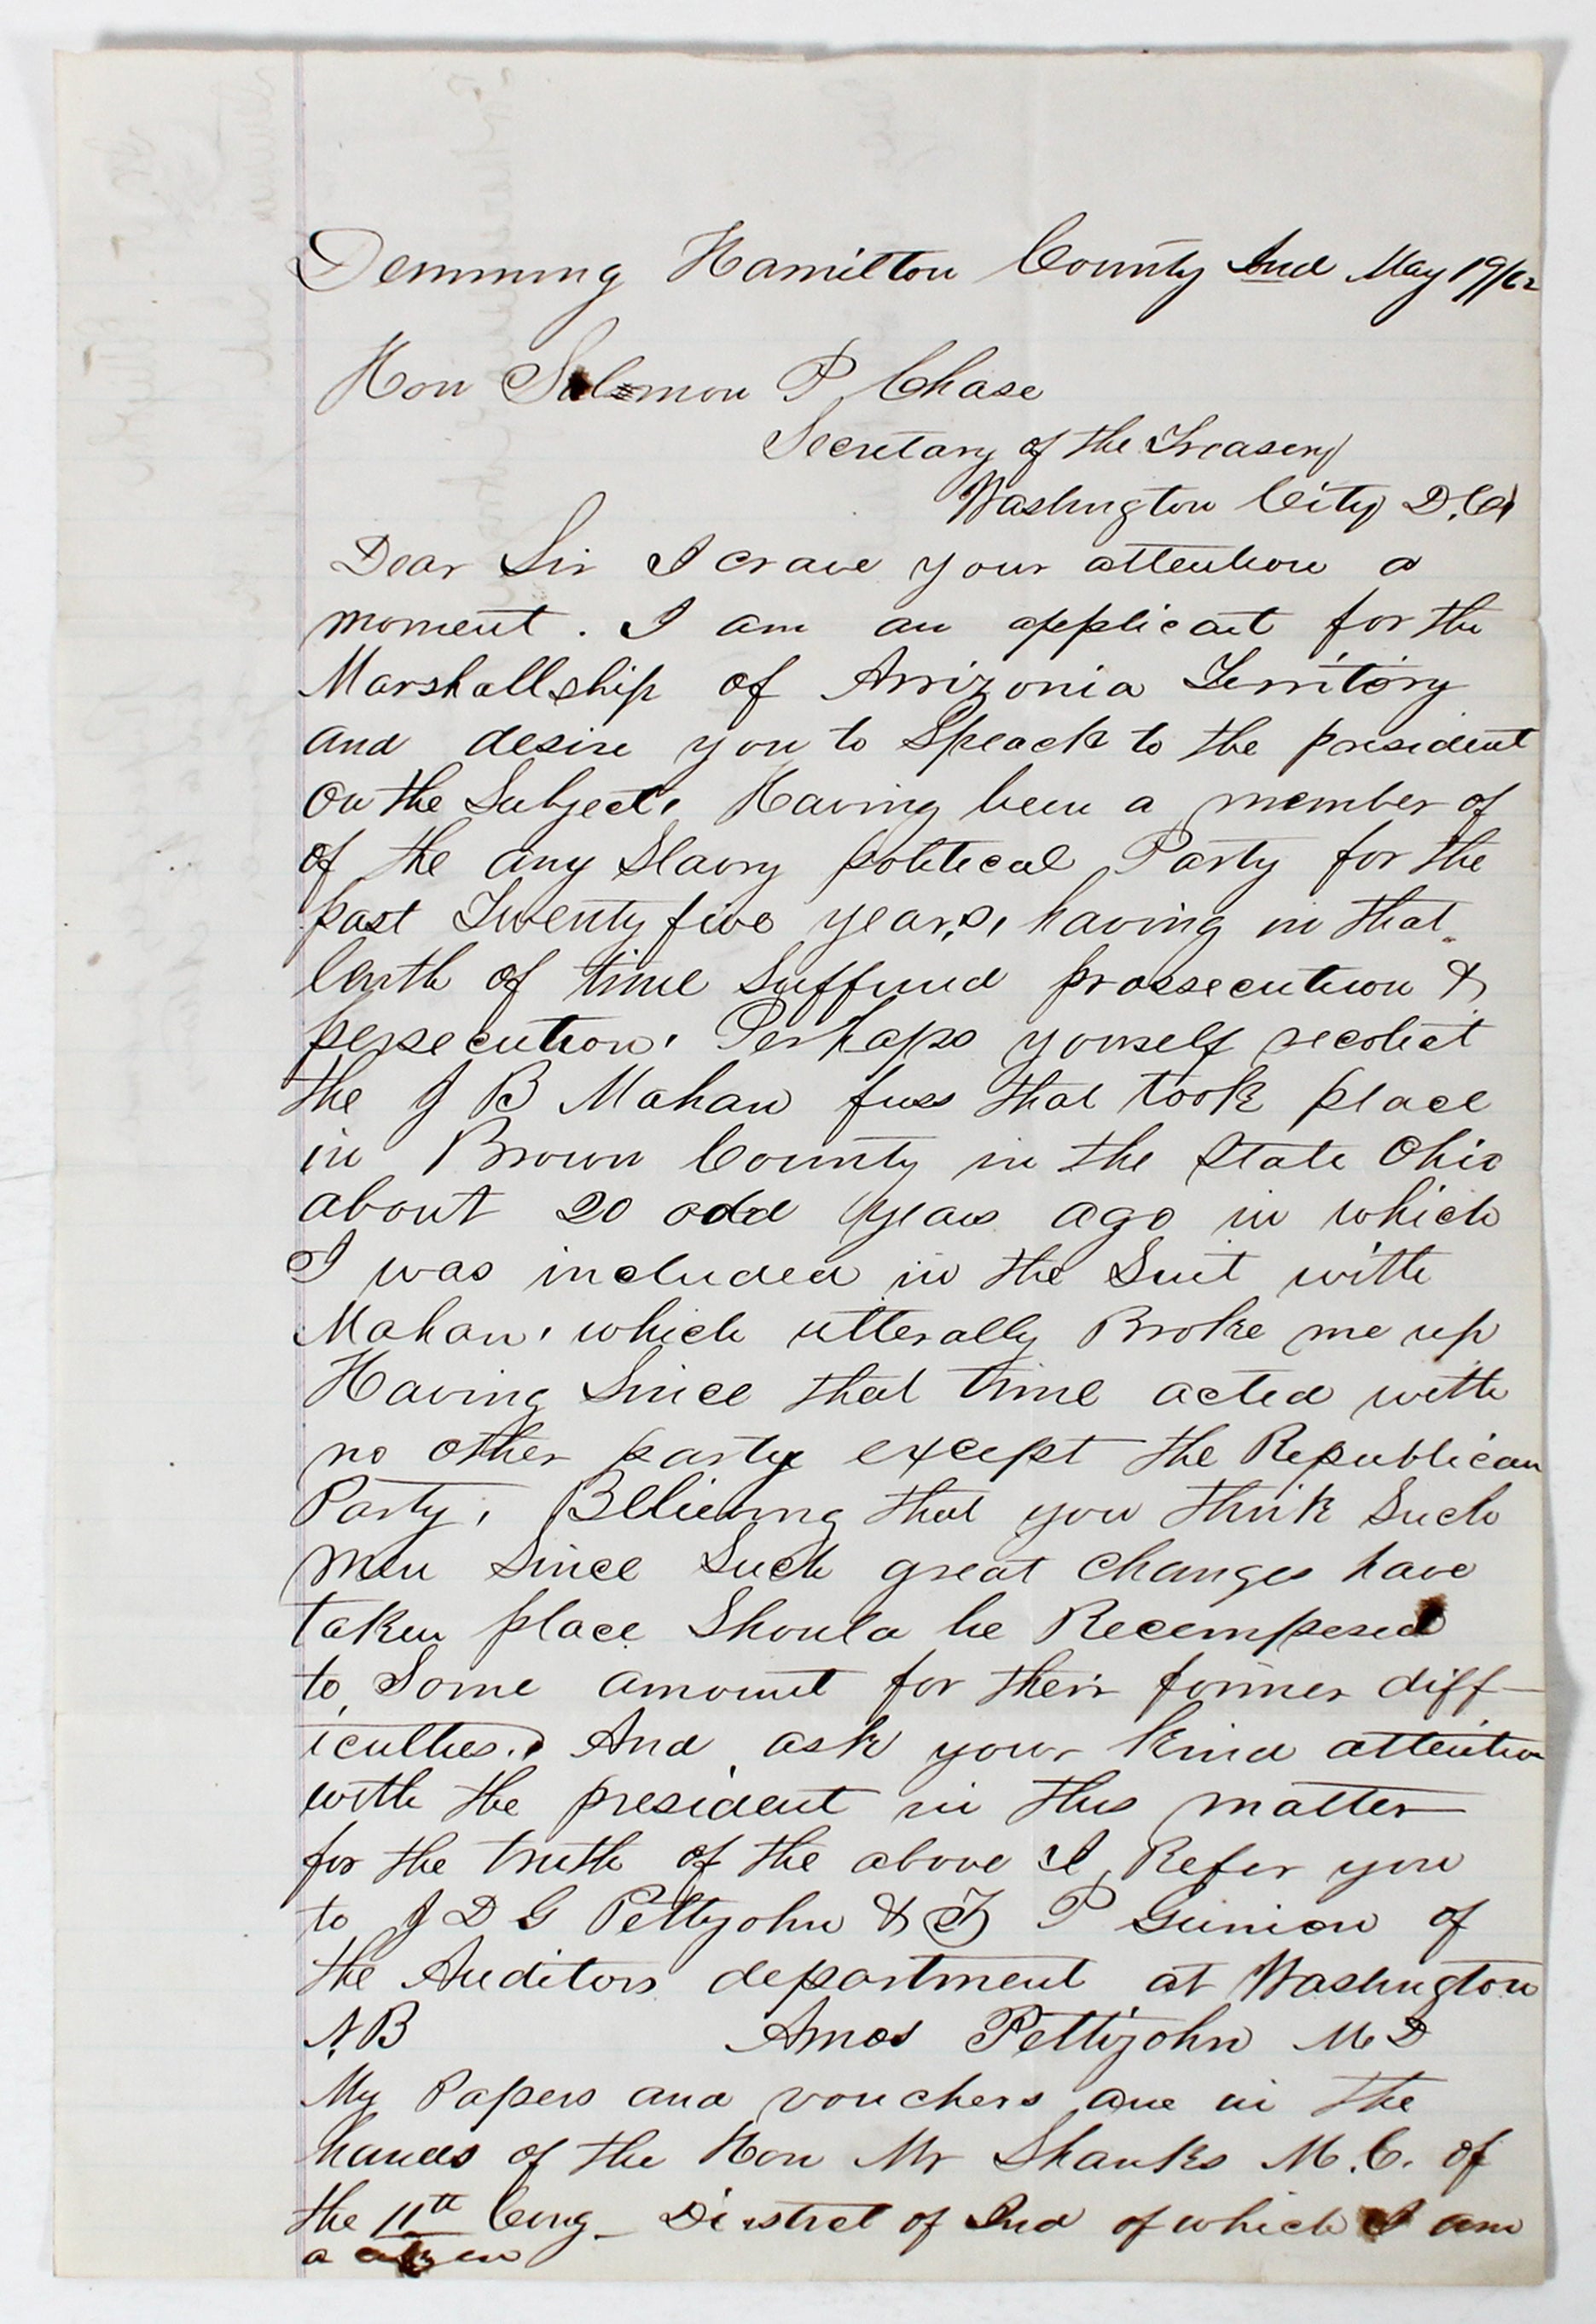 Demming Hamilton County Ind May 19/62
Hon Salomon P Chase
Secretary of the Treasery
Washington City D.C.
Dear Sir I crave your attention a
moment. I am an applicant for the
Marshallship of Arrizonia Territory
and desire you to Speack to the president
on the Subject. Having been a member of
of the any Slavry political Party for the
past Twenty five years, having in that
lenth of time Suffured prossecution &
persecution. Perhaps yourself recolect
the J B Mahan fuss that took place
in Brown County in the State Ohio
about 20 odd years ago in which
I was included in the Suit with
Mahan, which utterally Broke me up
Having Since that time acted with
no other party except the Republican
Party, Believing that you think Such
men Since Such great changes have
taken place Should be Recempesed
to Some amount for their former diff-
iculties. And ask your kind attention
with the president in this matter
for the truth of the above I Refer you
to J D G Pettyjohn & T P Gunion of
the Auditors department at Washington
N.B Amos Pettijohn M D
My Papers and vouchers are in the
hands of the Hon Mr Shanks M.C. of
the 11th Cong - District of Ind of which I am
a citizen